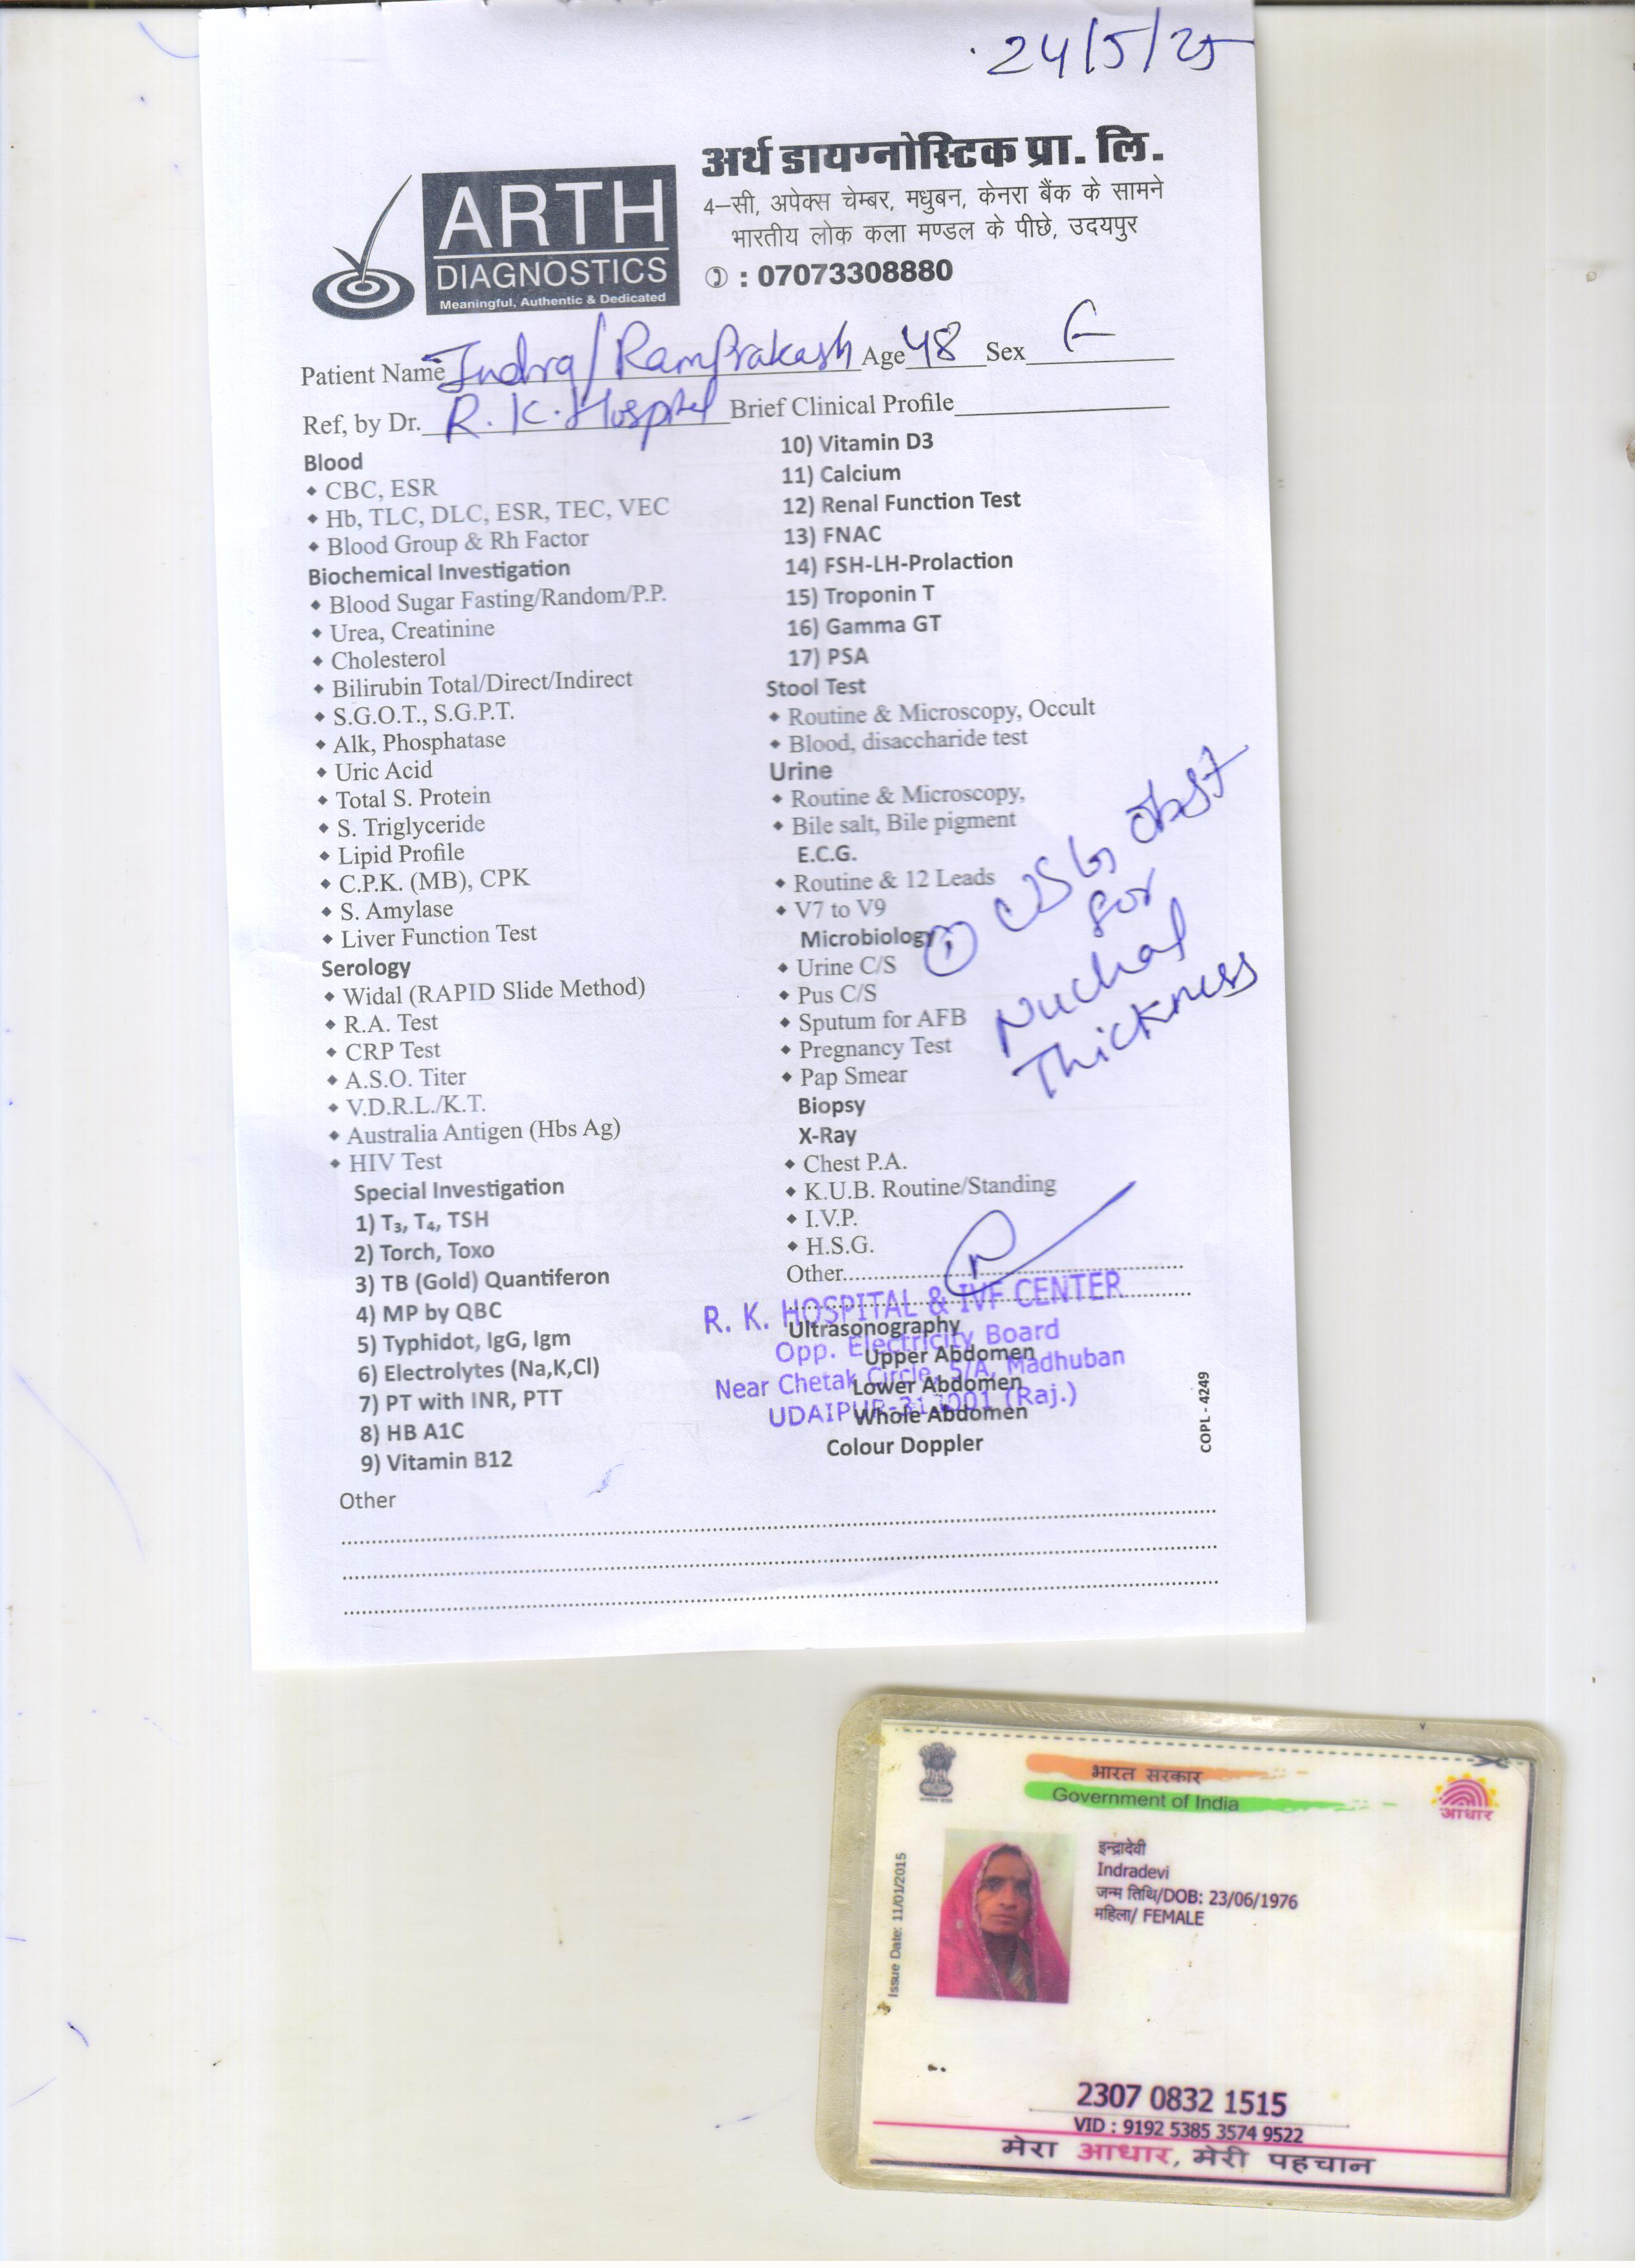 24/5/25
अर्थ डायग्नोस्टिक प्रा. लि.
4–सी, अपेक्स चेम्बर, मधुबन, केनरा बैंक के सामने
भारतीय लोक कला मण्डल के पीछे, उदयपुर
: 07073308880
ARTH
DIAGNOSTICS
Meaningful, Authentic & Dedicated
Patient Name Indra/RamPrakash Age 48 Sex F
Ref, by Dr. R.K. Hospital Brief Clinical Profile
Blood
CBC, ESR
Hb, TLC, DLC, ESR, TEC, VEC
Blood Group & Rh Factor
Biochemical Investigation
Blood Sugar Fasting/Random/P.P.
Urea, Creatinine
Cholesterol
Bilirubin Total/Direct/Indirect
S.G.O.T., S.G.P.T.
Alk, Phosphatase
Uric Acid
Total S. Protein
S. Triglyceride
Lipid Profile
C.P.K. (MB), CPK
S. Amylase
Liver Function Test
Serology
Widal (RAPID Slide Method)
R.A. Test
CRP Test
A.S.O. Titer
V.D.R.L./K.T.
Australia Antigen (Hbs Ag)
HIV Test
Special Investigation
1) T₃, T₄, TSH
2) Torch, Toxo
3) TB (Gold) Quantiferon
4) MP by QBC
5) Typhidot, IgG, Igm
6) Electrolytes (Na,K,Cl)
7) PT with INR, PTT
8) HB A1C
9) Vitamin B12
10) Vitamin D3
11) Calcium
12) Renal Function Test
13) FNAC
14) FSH-LH-Prolaction
15) Troponin T
16) Gamma GT
17) PSA
Stool Test
Routine & Microscopy, Occult
Blood, disaccharide test
Urine
Routine & Microscopy,
Bile salt, Bile pigment
E.C.G.
Routine & 12 Leads
V7 to V9
Microbiology
Urine C/S
Pus C/S
Sputum for AFB
Pregnancy Test
Pap Smear
Biopsy
X-Ray
Chest P.A.
K.U.B. Routine/Standing
I.V.P.
H.S.G.
Other
① USG obst
for
Nuchal
Thickness
R. K. HOSPITAL & IVF CENTER
Opp. Electricity Board
Near Chetak Circle, 5/A, Madhuban
UDAIPUR-313001 (Raj.)
Ultrasonography
Upper Abdomen
Lower Abdomen
Whole Abdomen
Colour Doppler
COPL - 4249
Other
भारत सरकार
Government of India
आधार
Issue Date: 11/01/2015
इन्द्रादेवी
Indradevi
जन्म तिथि/DOB: 23/06/1976
महिला/ FEMALE
2307 0832 1515
VID : 9192 5385 3574 9522
मेरा आधार, मेरी पहचान